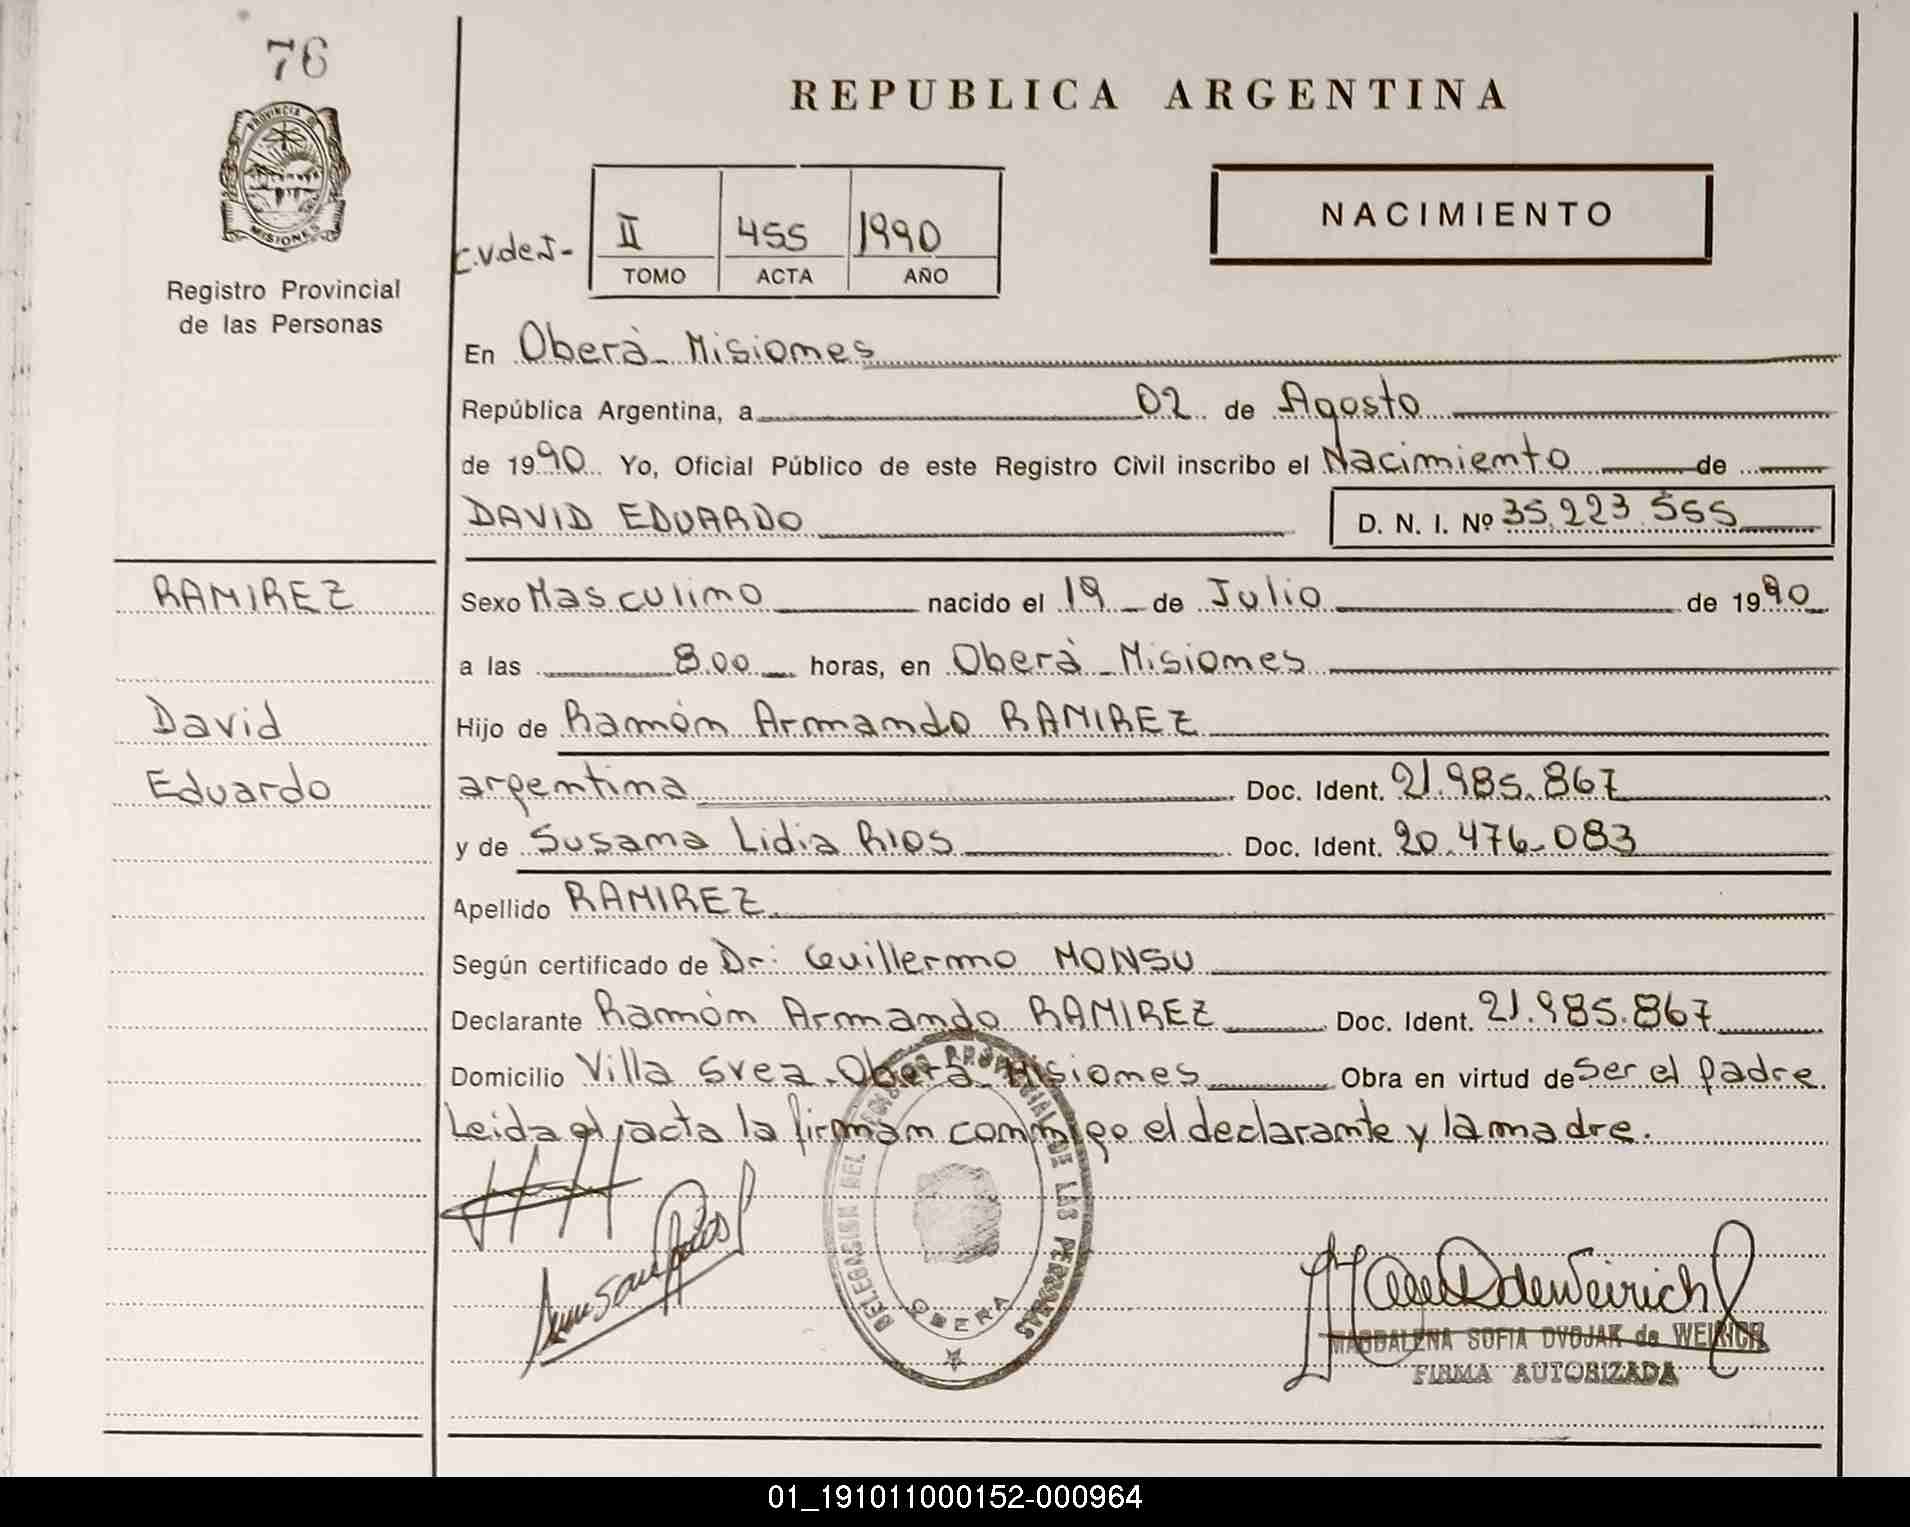 76
PROVINCIA DE
MISIONES
Registro Provincial
de las Personas
REPUBLICA ARGENTINA
C.V.de I-
II 455 1990
TOMO ACTA AÑO
NACIMIENTO
En Oberà Misiones
República Argentina, a 02 de Agosto
de 1990 Yo, Oficial Público de este Registro Civil inscribo el Nacimiento de
DAVID EDUARDO D. N. I. Nº 35.223.555
RAMIREZ
Sexo Masculino nacido el 19 de Julio de 1990
a las 8.00 horas, en Oberà Misiones
David
Hijo de Ramón Armando RAMIREZ
Eduardo
argentina Doc. Ident. 21.985.867
y de Susana Lidia RIOS Doc. Ident. 20.476.083
Apellido RAMIREZ
Según certificado de Dr: Guillermo MONSU
Declarante Ramón Armando RAMIREZ Doc. Ident. 21.985.867
Domicilio Villa Svea. Oberà Misiones Obra en virtud de ser el padre
Leida el acta la firman conmigo el declarante y la madre.
DELEGACION DEL REGISTRO PROVINCIAL DE LAS PERSONAS
OBERA
MAGDALENA SOFIA DVOJAK de WEIRICH
FIRMA AUTORIZADA
01_191011000152-000964